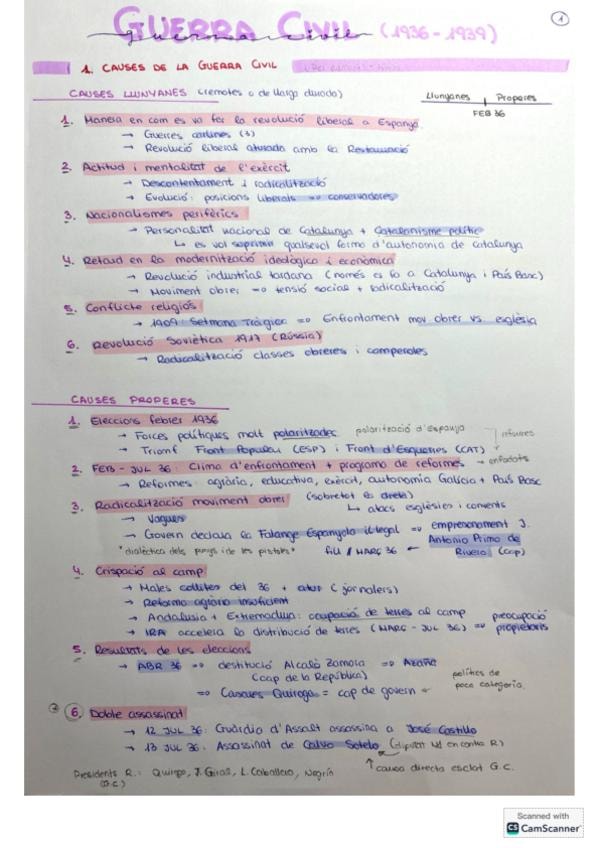 1
GUERRA CIVIL (1936-1939)
guerra civil
1. CAUSES DE LA GUERRA CIVIL
CAUSES LLUNYANES (remotes o de llarga durada)
Llunyanes | Properes
FEB 36
1. Manera en com es va fer la revolució liberal a Espanya.
→ Guerres carlines (3)
→ Revolució liberal aturada amb la Restauració
2. Actitud i mentalitat de l'exèrcit
→ Descontentament i radicalització
→ Evolució: posicions liberals => conservadores
3. Nacionalismes perifèrics
→ Personalitat nacional de Catalunya + Catalanisme polític
↳ es vol suprimir qualsevol forma d'autonomia de Catalunya
4. Retard en la modernització ideològica i econòmica
→ Revolució industrial tardana (només es fa a Catalunya i País Basc)
→ Moviment obrer => tensió social + radicalització
5. Conflicte religiós
→ 1909: Setmana Tràgica => Enfrontament mov. obrer vs. església
6. Revolució Soviètica 1917 (Rússia)
→ Radicalització classes obreres i camperoles
CAUSES PROPERES
1. Eleccions febrer 1936
→ Forces polítiques molt polaritzades polarització d'Espanya
→ Triomf Front Popular (ESP) i Front d'Esquerres (CAT) reformes
2. FEB - JUL 36: Clima d'enfrontament + programa de reformes → enfadats
→ Reformes: agrària, educativa, exèrcit, autonomia Galícia + País Basc
3. Radicalització moviment obrer (sobretot la dreta)
↳ atacs esglésies i convents
→ Vagues
→ Govern declara la Falange Espanyola il·legal => empresonament J.
"dialèctica dels punys i de les pistoles" fill / MARÇ 36 ← Antonio Primo de
Rivera (cap)
4. Crispació al camp
→ Males collites del 36 + atur (jornalers)
→ Reforma agrària insuficient
→ Andalusia + Extremadura: ocupació de terres al camp preocupació
→ IRA accelera la distribució de terres (MARÇ - JUL 36) => propietaris
5. Resultats de les eleccions
→ ABR 36 => destitució Alcalà Zamora => Azaña
(cap de la República)
=> Casares Quiroga = cap de govern ← polítics de
poca categoria.
6. Doble assassinat
→ 12 JUL 36: Guàrdia d'Assalt assassina a José Castillo
→ 13 JUL 36: Assassinat de Calvo Sotelo (diputat Nd en contra R)
↑ causa directa esclat G.C.
Presidents R.: Quiroga, J. Giral, L. Caballero, Negrín
(G.C)
Scanned with
CS CamScanner